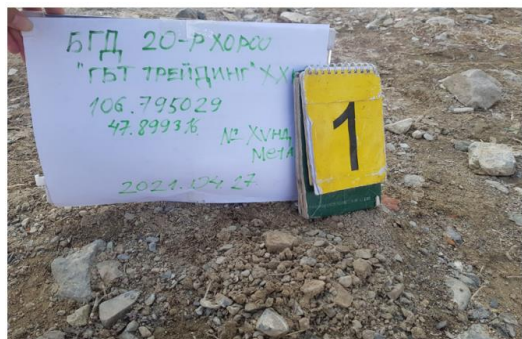 БГД 20-р хороо
"ГБТ ТРЕЙДИНГ" ХХ
106.795029
47.899316
№2 Хүнд
Мета
2021.04.27.
1